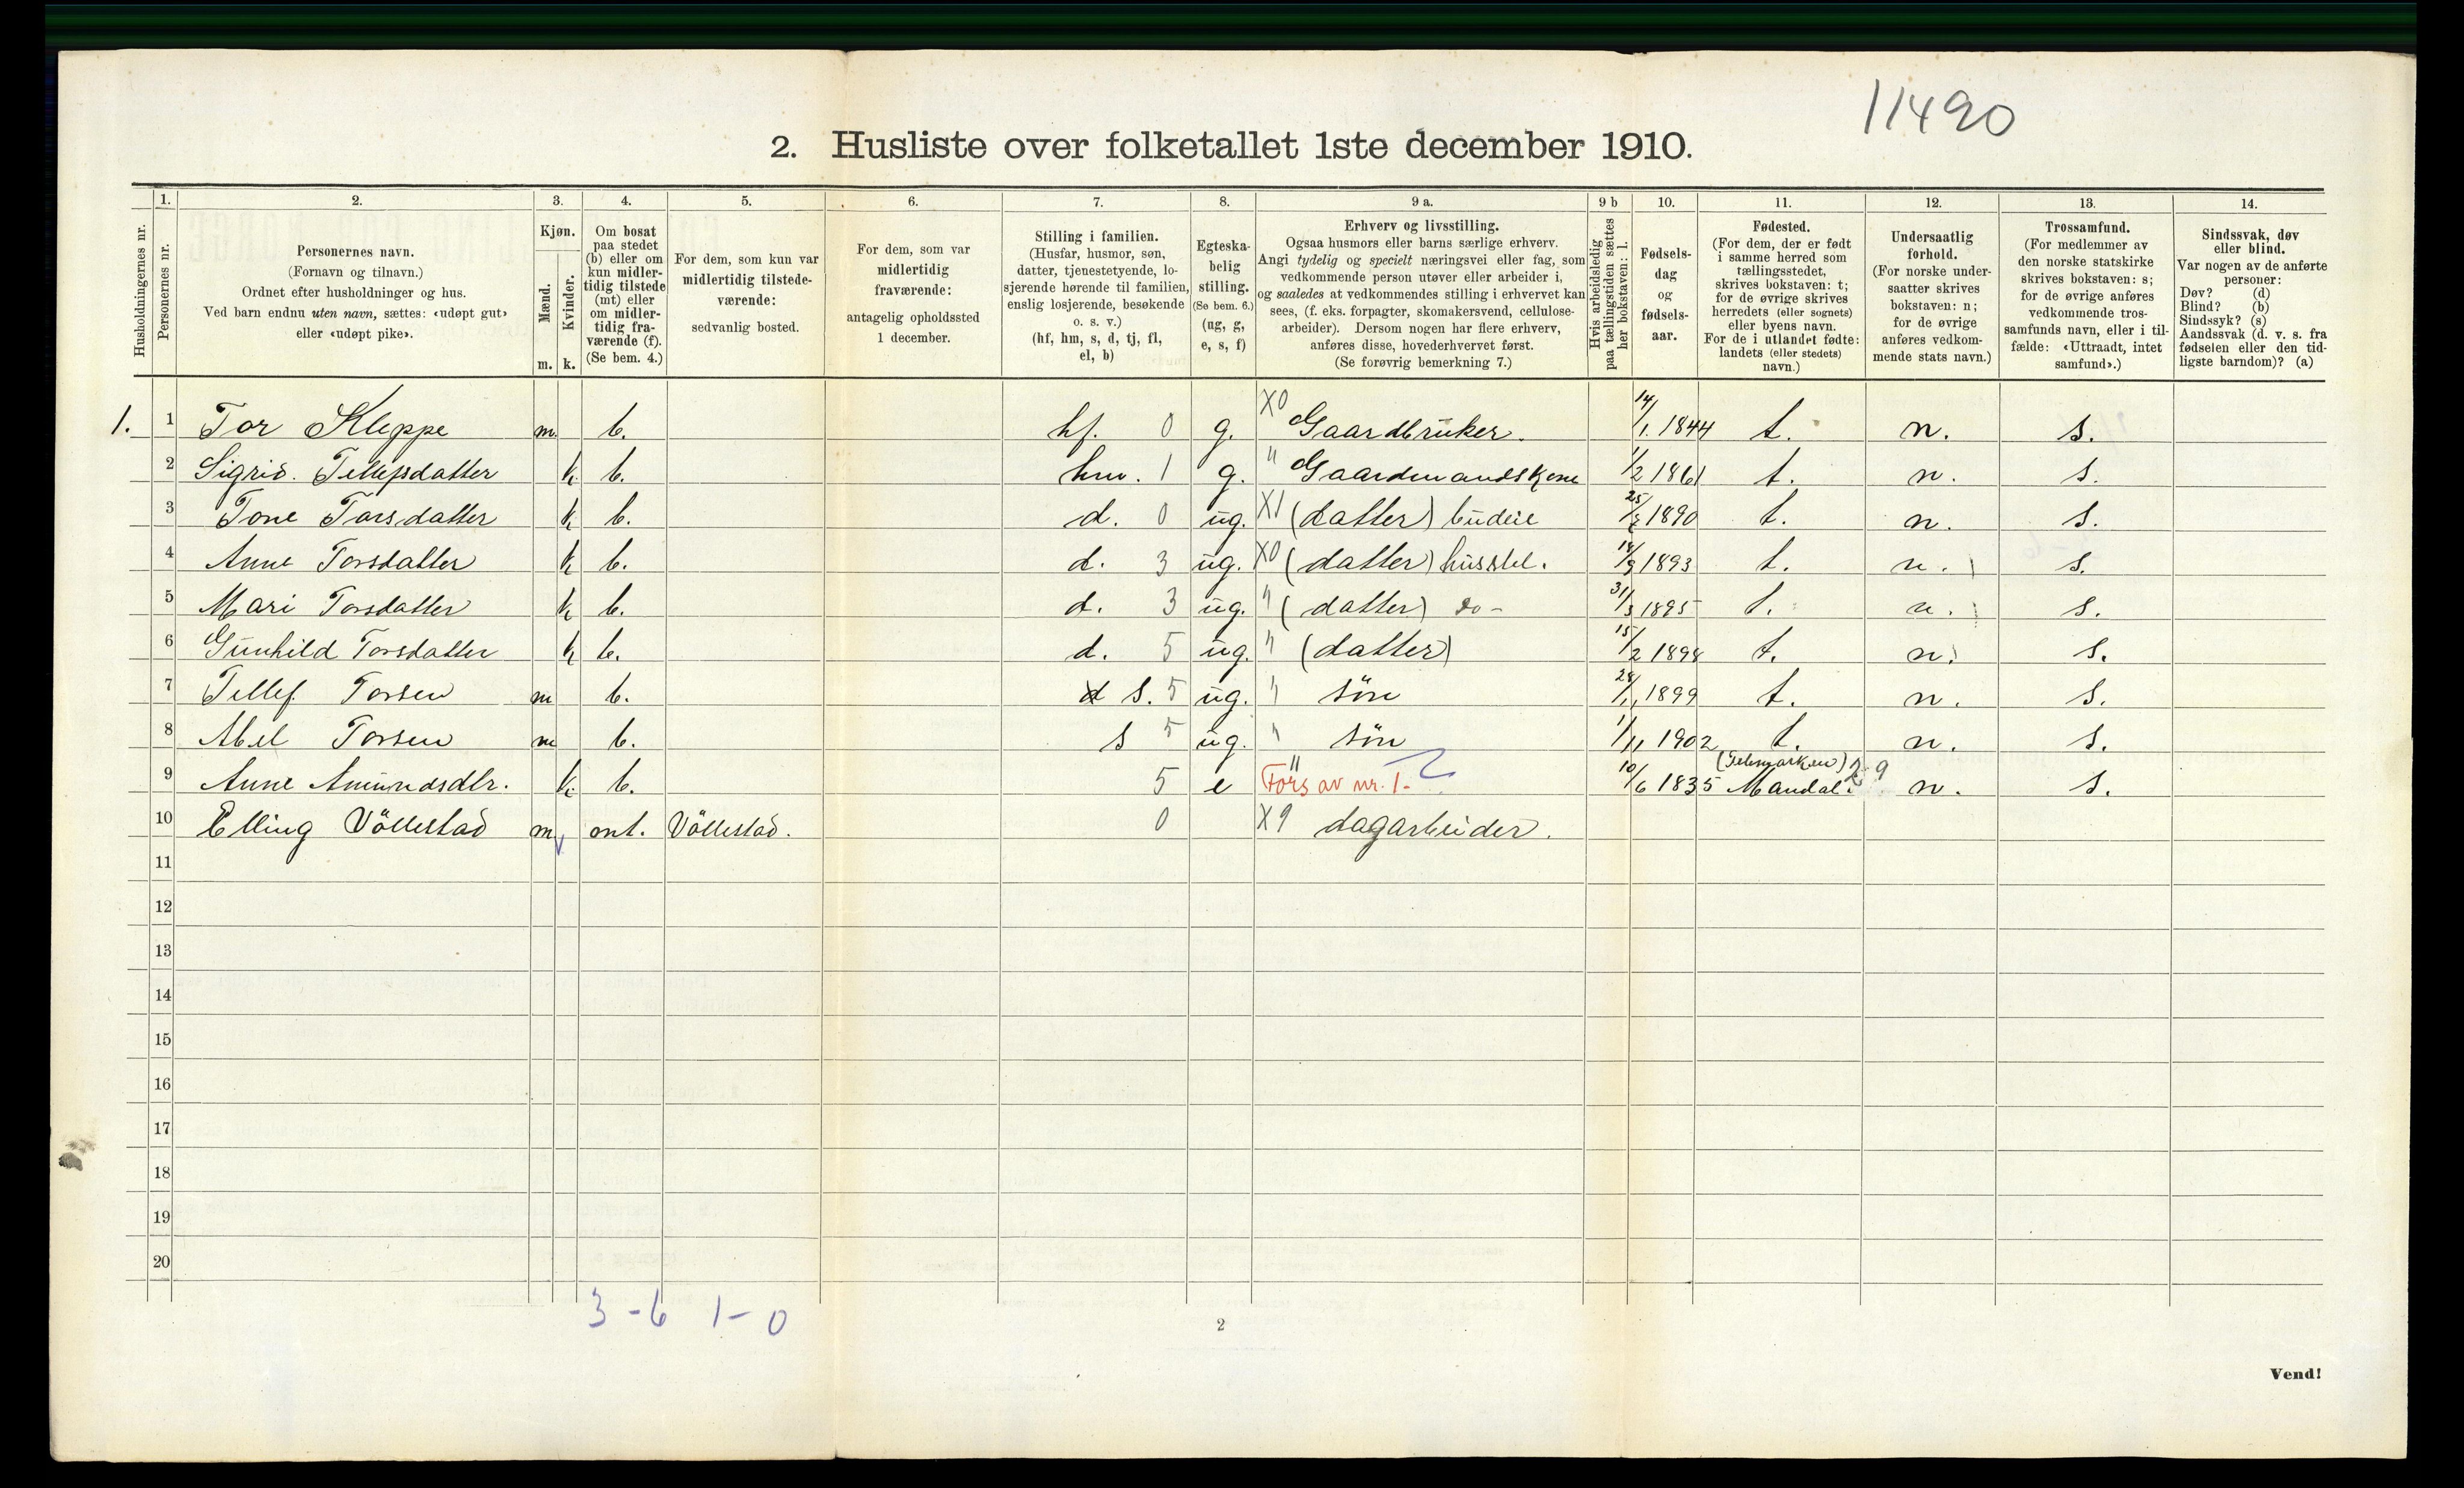 11490
2. Husliste over folketallet 1ste december 1910.
Husholdningernes nr.
1.
Personernes nr.
2.
Personernes navn.
(Fornavn og tilnavn.)
Ordnet efter husholdninger og hus.
Ved barn endnu uten navn, sættes: «udøpt gut»
eller «udøpt pike».
3.
Kjøn.
Mænd.
m.
Kvinder.
k.
4.
Om bosat
paa stedet
(b) eller om
kun midler-
tidig tilstede
(mt) eller
om midler-
tidig fra-
værende (f).
(Se bem. 4.)
5.
For dem, som kun var
midlertidig tilstede-
værende:
sedvanlig bosted.
6.
For dem, som var
midlertidig
fraværende:
antagelig opholdssted
1 december.
7.
Stilling i familien.
(Husfar, husmor, søn,
datter, tjenestetyende, lo-
sjerende hørende til familien,
enslig losjerende, besøkende
o. s. v.)
(hf, hm, s, d, tj, fl,
el, b)
8.
Egteska-
belig
stilling.
(Se bem. 6.)
(ug, g,
e, s, f)
9 a.
Erhverv og livsstilling.
Ogsaa husmors eller barns særlige erhverv.
Angi tydelig og specielt næringsvei eller fag, som
vedkommende person utøver eller arbeider i,
og saaledes at vedkommendes stilling i erhvervet kan
sees, (f. eks. forpagter, skomakersvend, cellulose-
arbeider). Dersom nogen har flere erhverv,
anføres disse, hovederhvervet først.
(Se forøvrig bemerkning 7.)
9 b
Hvis arbeidsledig
paa tællingstiden sættes
her bokstaven: l.
10.
Fødsels-
dag
og
fødsels-
aar.
11.
Fødested.
(For dem, der er født
i samme herred som
tællingsstedet,
skrives bokstaven: t;
for de øvrige skrives
herredets (eller sognets)
eller byens navn.
For de i utlandet fødte:
landets (eller stedets)
navn.)
12.
Undersaatlig
forhold.
(For norske under-
saatter skrives
bokstaven: n;
for de øvrige
anføres vedkom-
mende stats navn.)
13.
Trossamfund.
(For medlemmer av
den norske statskirke
skrives bokstaven: s;
for de øvrige anføres
vedkommende tros-
samfunds navn, eller i til-
fælde: «Uttraadt, intet
samfund».)
14.
Sindssvak, døv
eller blind.
Var nogen av de anførte
personer:
Døv? (d)
Blind? (b)
Sindssyk? (s)
Aandssvak (d. v. s. fra
fødselen eller den tid-
ligste barndom)? (a)
1. 1 Tor Kleppe m. b. hf. 0 g. X0 Gaardbruker. 14/1. 1844 t. n. s.
2 Sigrid. Tellefsdatter k. b. hm. 1 g. " Gaardmandskone 1/2 1861 t. n. s.
3 Tone Torsdatter k b. d. 0 ug. X1 (datter) budeie 1890 t. n. s.
4 Anne Torsdatter k b. d. 3 ug. X0 (datter) husstel. 14/9 1893 t. n. s.
5 Mari Torsdatter k b. d. 3 ug. " (datter) do - 31/3 1895 t. n. s.
6 Gunhild Torsdatter k b. d. 5 ug. " (datter) 15/2 1898 t. n. s.
7 Tellef Torsen m b. d s. 5 ug. " søn 28/11 1899 t. n. s.
8 Abel Torsen m b. s 5 ug. " søn 1/11 1902 t. n. s.
9 Anne Amundsdtr. k. b. 5 e " Førs av nr. 1- 10/6 1835 (Telemarken) Mandal. 29 n. s.
10 Elling Vøllestad m mt. Vøllestad. 0 X9 dagarbeider.
11
12
13
14
15
16
17
18
19
20
3-6 1-0
2
Vend!